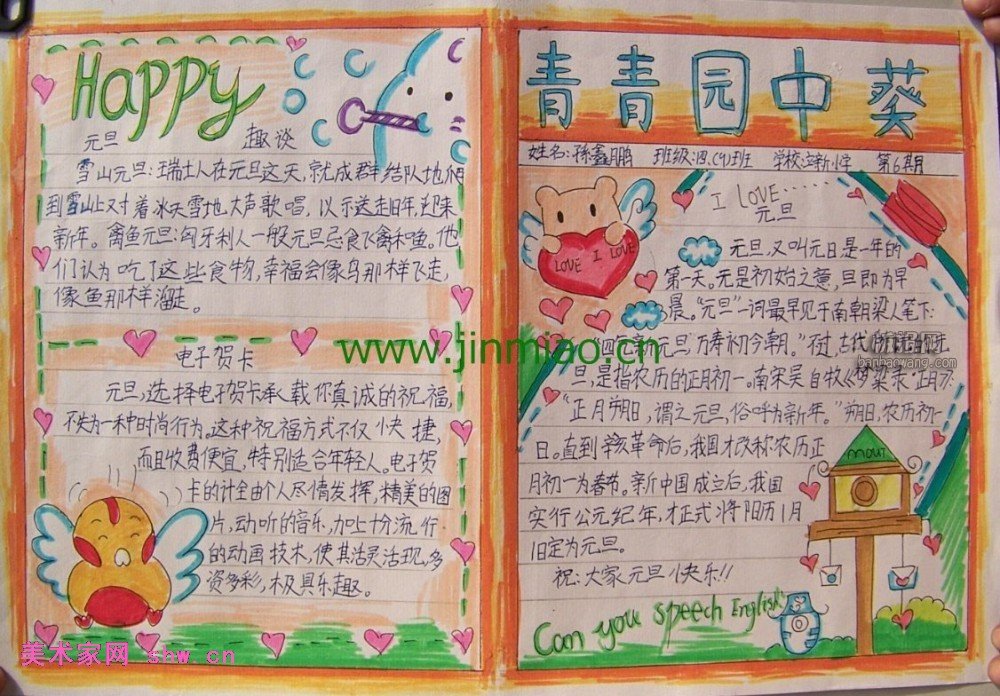 Happy
元旦 趣谈
雪山元旦:瑞士人在元旦这天,就成群结队地爬
到雪山上对着冰天雪地大声歌唱,以示送走旧年,迎来
新年。禽鱼元旦:匈牙利人一般元旦忌食飞禽和鱼。他
们认为吃了这些食物,幸福会像鸟那样飞走,
像鱼那样溜走。
电子贺卡
元旦,选择电子贺卡承载你真诚的祝福,
不失为一种时尚行为。这种祝福方式不仅快捷,
而且收费便宜,特别适合年轻人。电子贺
卡的计全由个人尽情发挥,精美的图
片,动听的音乐,加上十分流行
的动画技术,使其活灵活现,多
资多彩,极具乐趣。
美术家网 shw.cn
www.jinmiao.cn
青青园中葵
姓名:孙鑫鹏 班级:四.(4)班 学校:立新小学 第6期
I LOVE......
元旦
LOVE I LOVE
元旦,又叫元日是一年的
第一天。元是初始之意,旦即为早
晨。“元旦”一词最早见于南朝梁人笔下:
“四气新元旦,万寿初今朝。”不过,古代所说的元
旦,是指农历的正月初一。南宋吴自牧《梦粱录》“正月”:
“正月朔日,谓之元旦,俗呼为新年。”朔日,农历初一
日。直到辛亥革命后,我国才改称农历正
月初一为春节。新中国成立后,我国
实行公元纪年,才正式将阳历1月
1日定为元旦。
祝:大家元旦快乐!!
Can you speech English
banbaowang.com